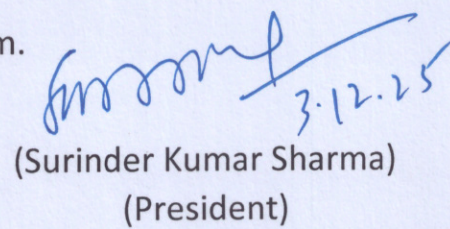 m.
3.12.25
(Surinder Kumar Sharma)
(President)